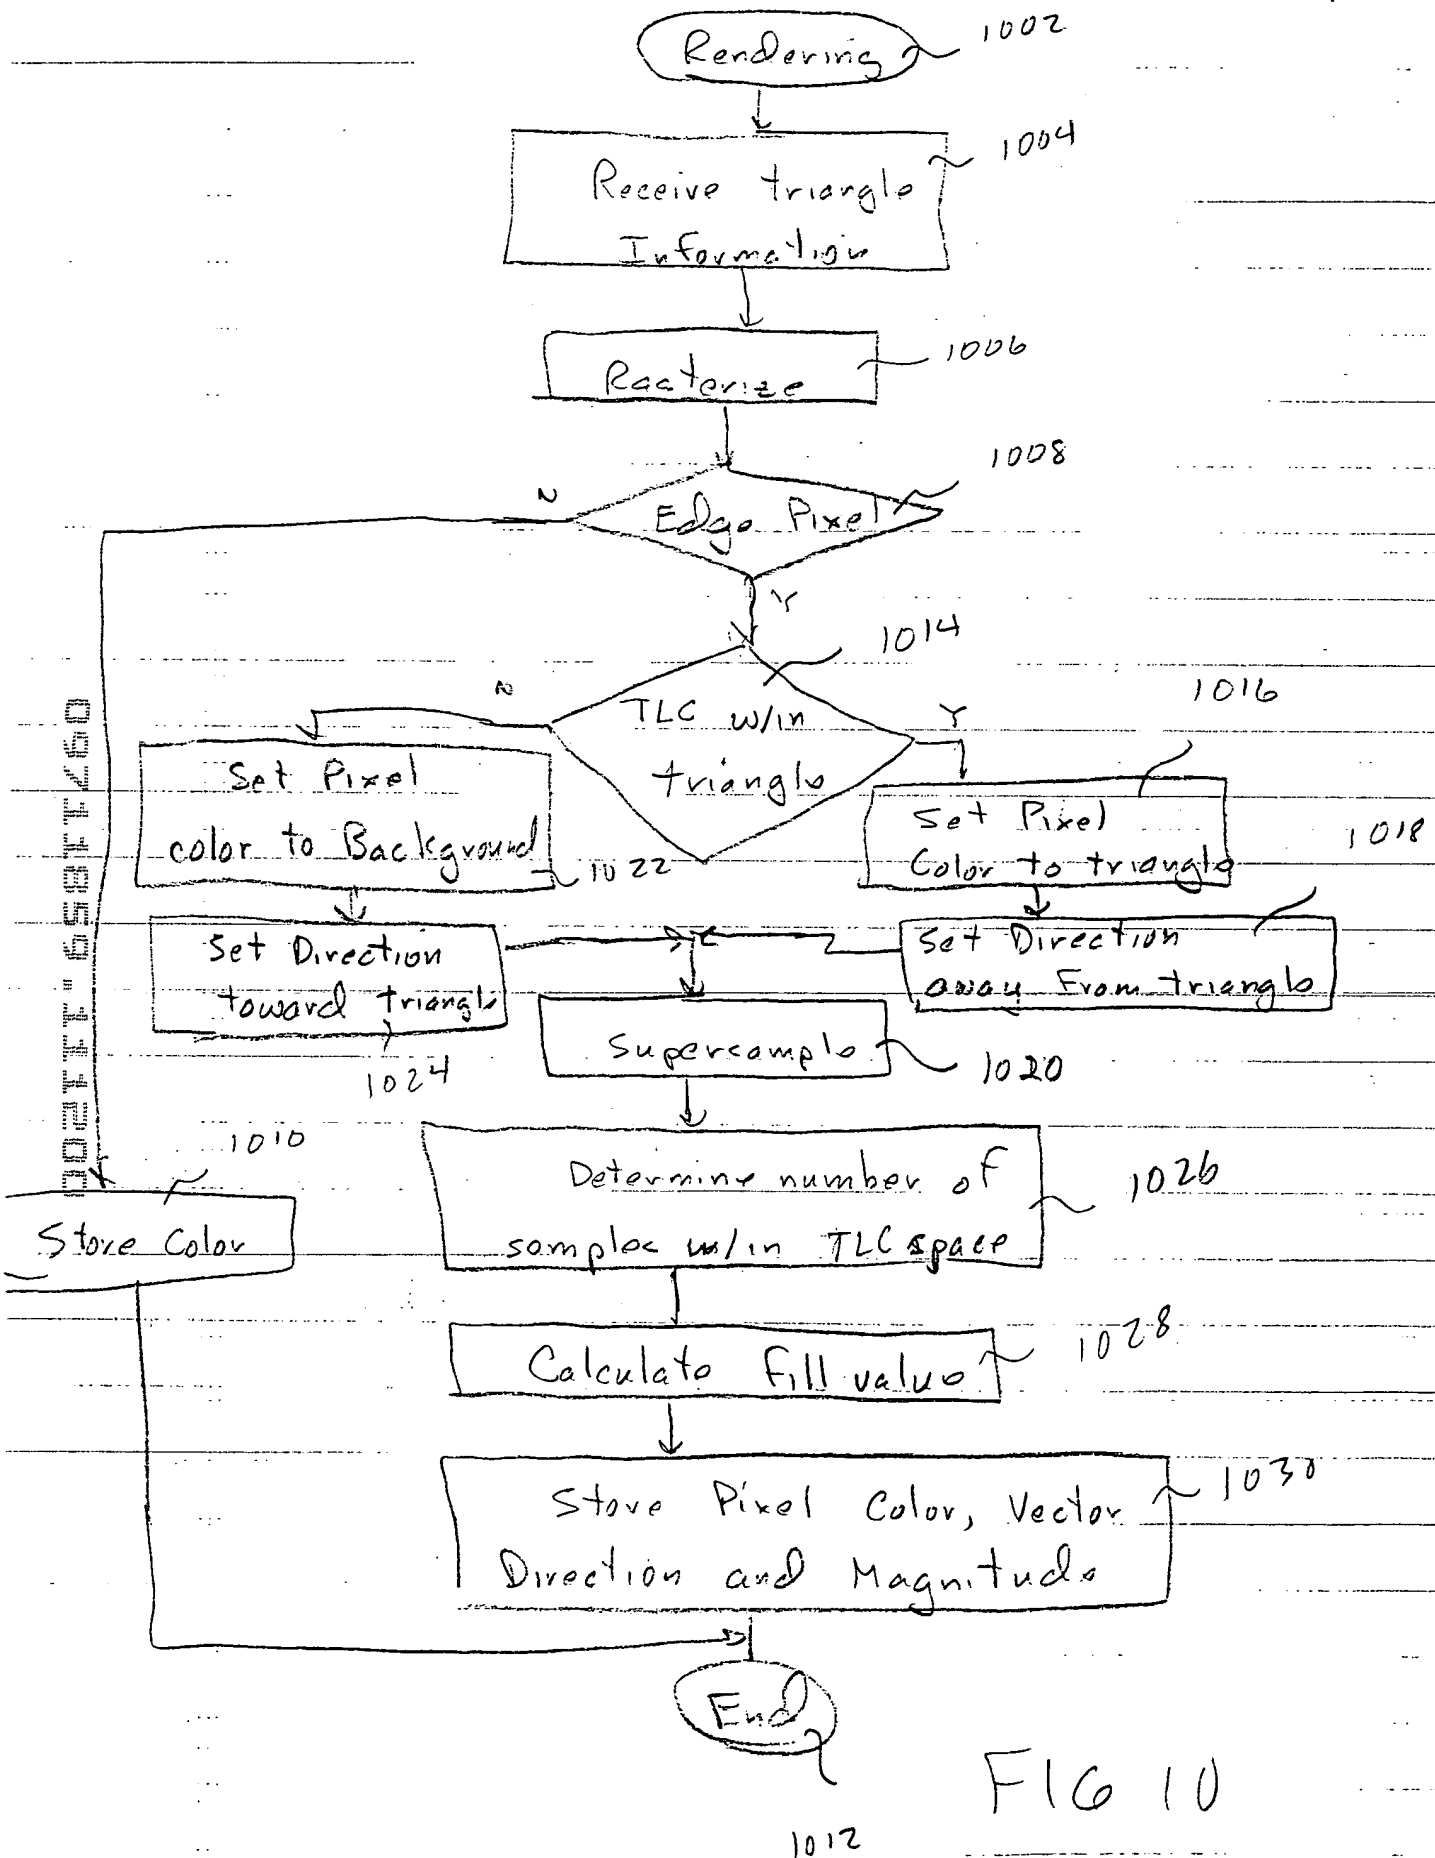 Rendering 1002
1004
Receive triangle
Information
1006
Rasterize
1008
N
Edge Pixel
Y
1014
N
TLC w/in
Y
triangle
1016
Set Pixel
color to Background
1022
Set Pixel
Color to triangle
1018
Set Direction
toward triangle
1024
Set Direction
away From triangle
Supersample
1020
1010
Store Color
Determine number of
samples w/in TLC space
1026
Calculate Fill value
1028
Store Pixel Color, Vector
Direction and Magnitude
1030
End
1012
FIG 10
09711859.111200